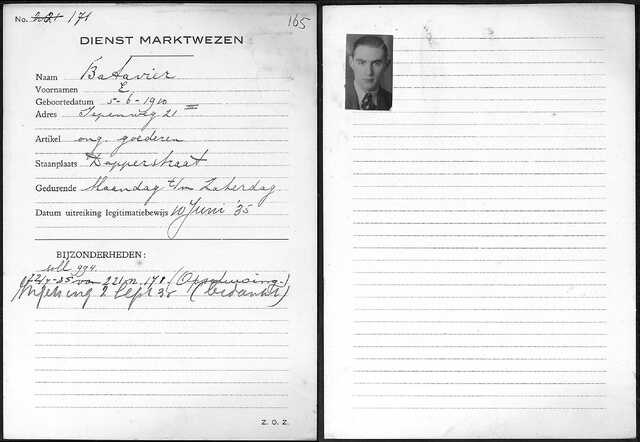 No. 171
165
DIENST MARKTWEZEN
Naam Batavier
Voornamen E
Geboortedatum 5-6-1910
Adres Iepenweg 21 III
Artikel ong. goederen
Staanplaats Dapperstraat
Gedurende Maandag t/m Zaterdag
Datum uitreiking legitimatiebewijs 10 Juni '35
BIJZONDERHEDEN:
soll 994
2 Sept 35 (bedankt)
Z. O. Z.